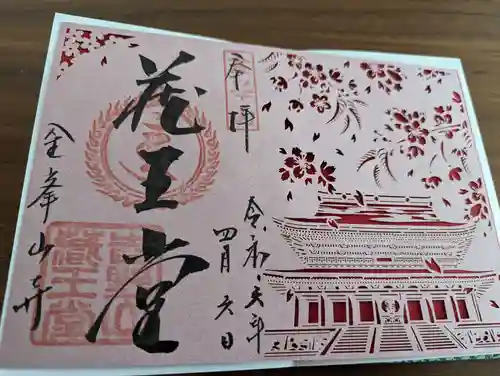 奉拝
令和六年
四月六日
蔵王堂
金峯山寺